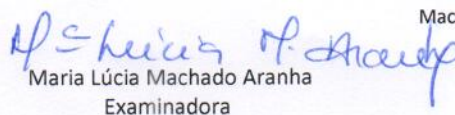 Mac
Mª Lúcia M. Aranha
Maria Lúcia Machado Aranha
Examinadora